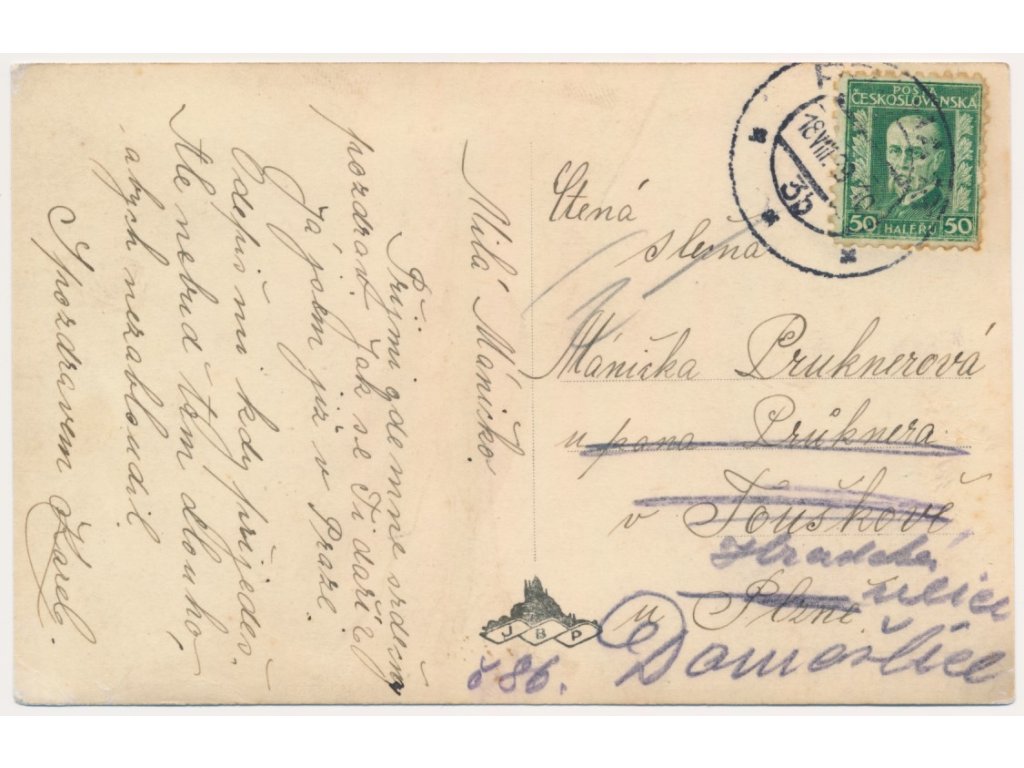 Milá Máničko
Přijmi ode mne srdečný
pozdrav. Jak se Ti daří?
Já jsem již v Praze.
Odepiš mi kdy přijedeš.
Ale nebuď tam dlouho,
abych nezabloudil.
S pozdravem Karel.
POŠTA
ČESKOSLOVENSKÁ
50 HALERŮ 50
18 VIII
3b
Ctěná
slečna
Mánička Pruknerová
u pana Průknera
v Touškově
Hradská
u Plzně ulice
Domažlice
č 86.
J B P